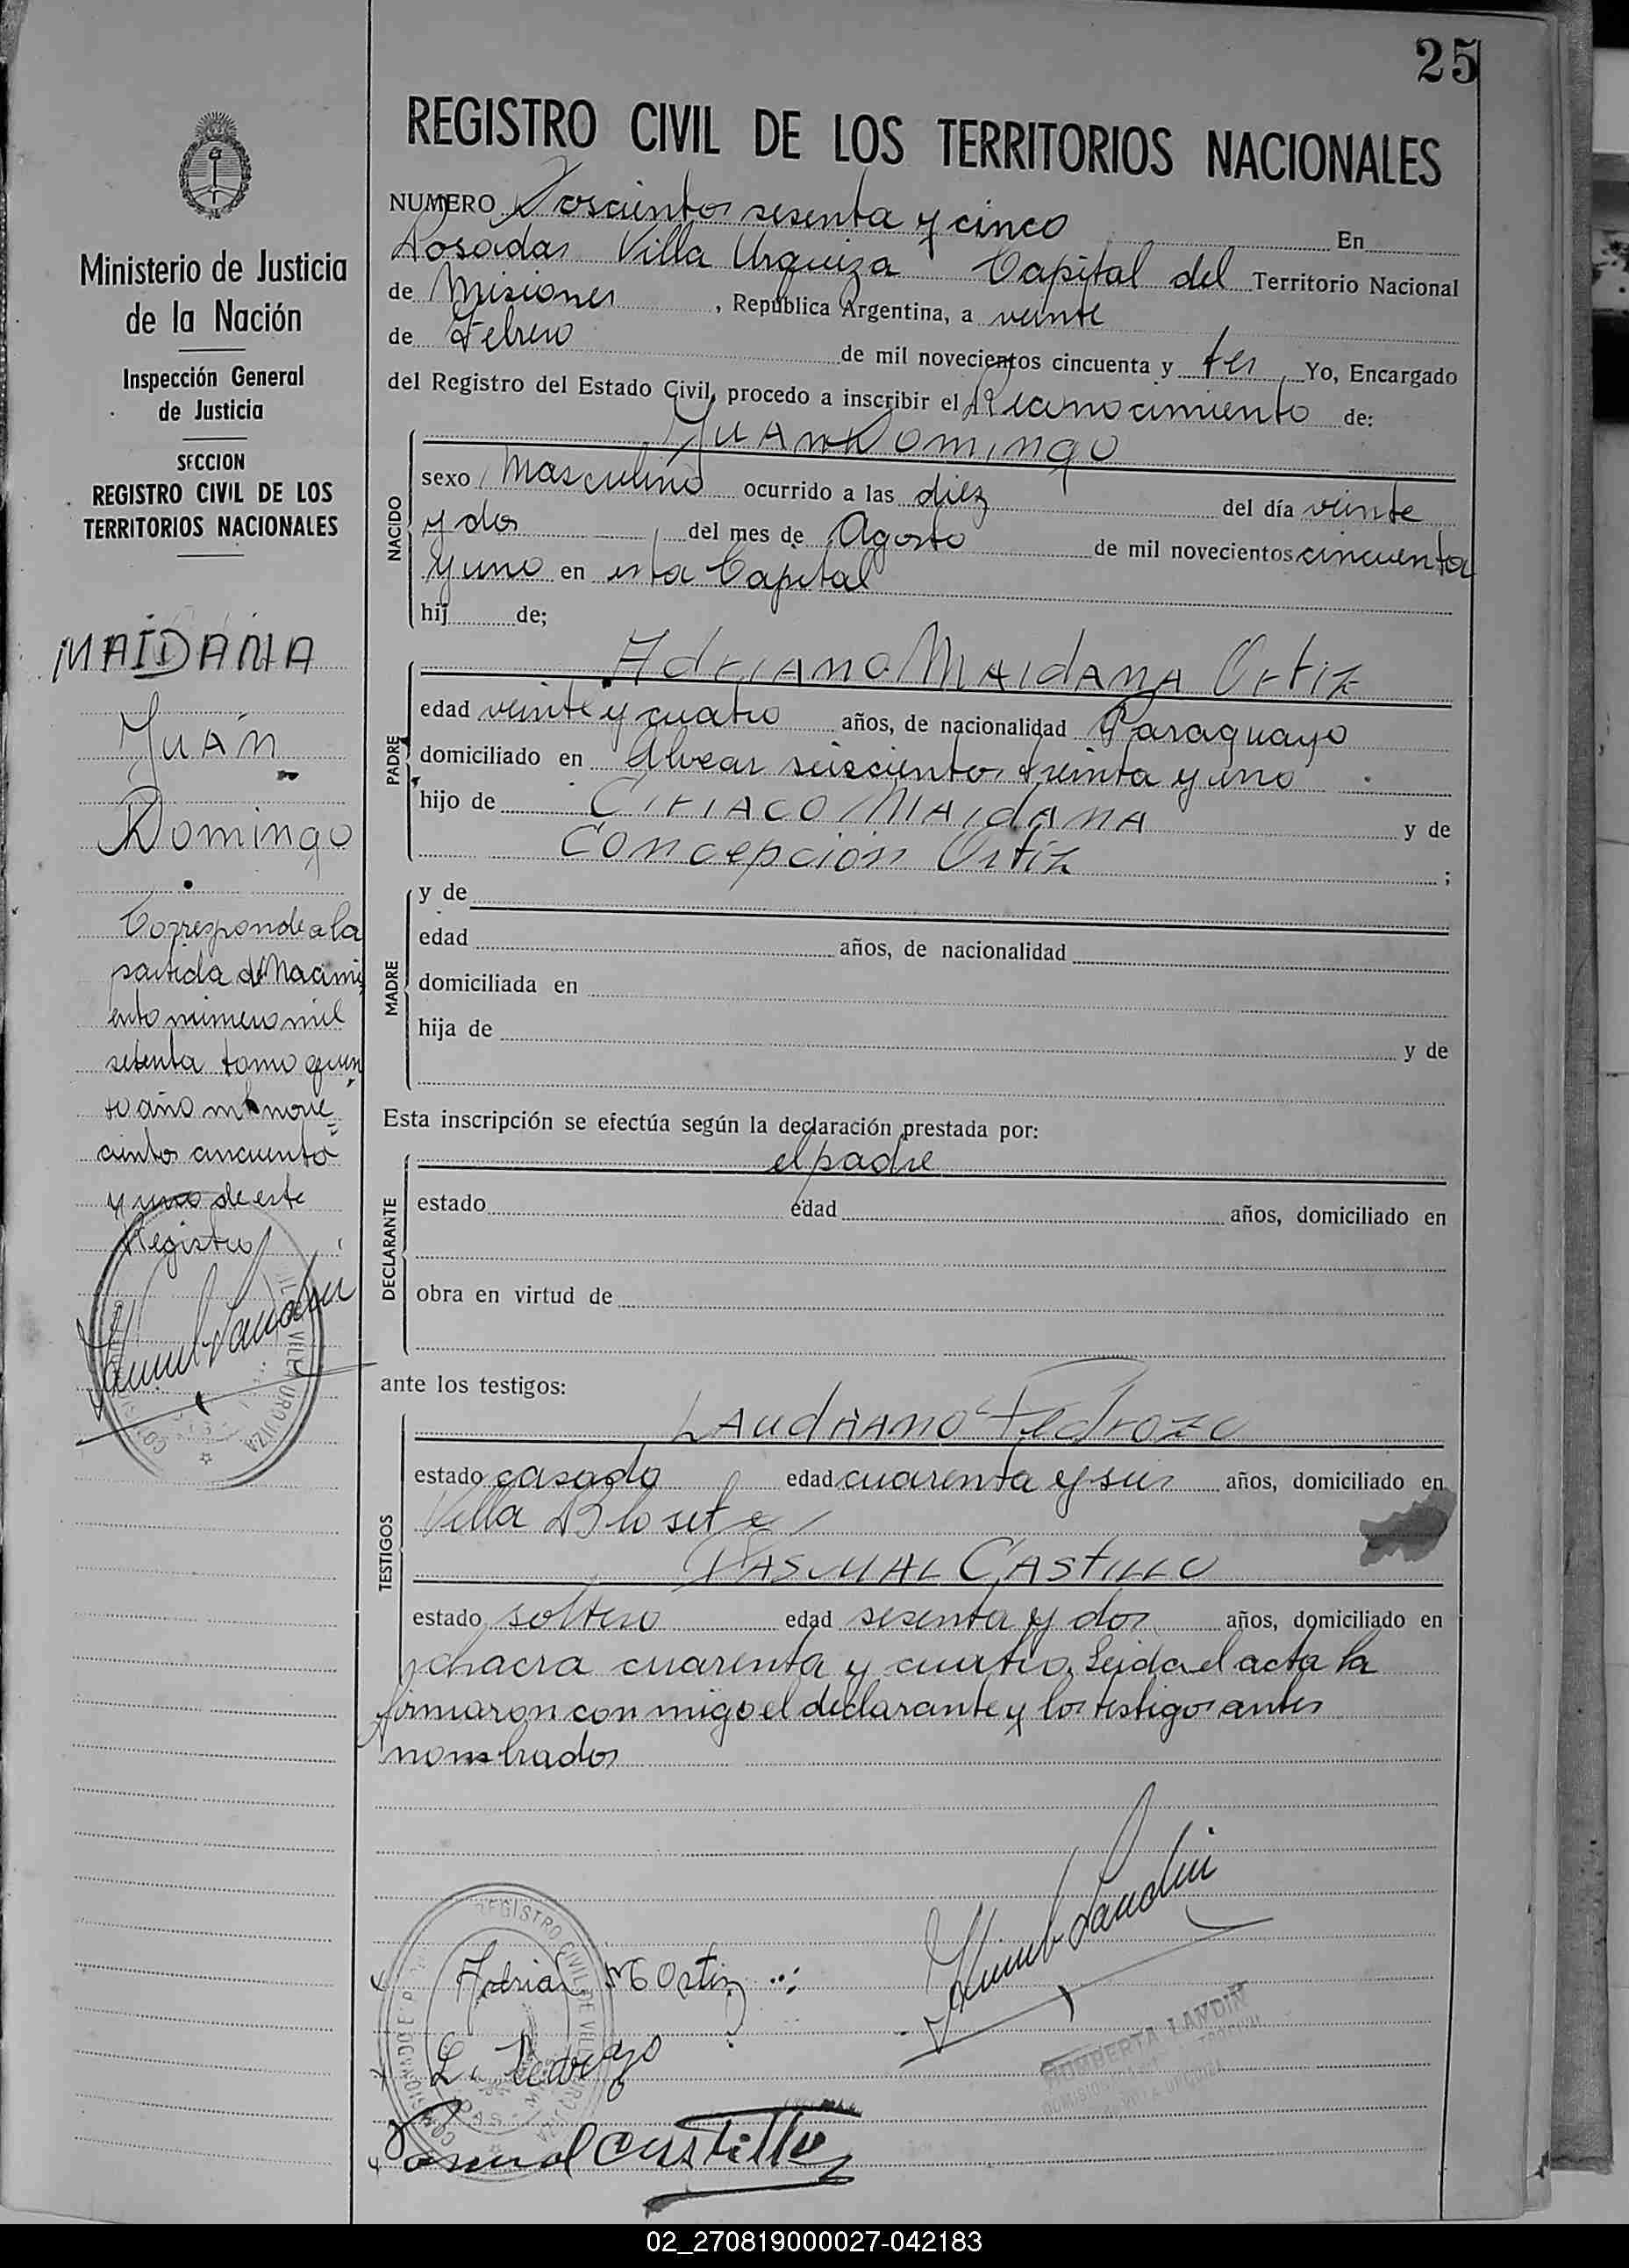 25
REGISTRO CIVIL DE LOS TERRITORIOS NACIONALES
NUMERO Doscientos sesenta y cinco En
Posadas Villa Urquiza Capital del Territorio Nacional
de Misiones, República Argentina, a veinte
de Febrero de mil novecientos cincuenta y tres Yo, Encargado
del Registro del Estado Civil, procedo a inscribir el Reconocimiento de:
NACIDO
Juan Domingo
sexo Masculino ocurrido a las diez del día veinte
y dos del mes de Agosto de mil novecientos cincuenta
y uno en esta Capital
hij de;
PADRE
Adriano Maidana Ortiz
edad veinte y cuatro años, de nacionalidad Paraguayo
domiciliado en Alvear seiscientos treinta y uno
hijo de Ciriaco Maidana y de
Concepción Ortiz ;
MADRE
y de
edad años, de nacionalidad
domiciliada en
hija de y de
Esta inscripción se efectúa según la declaración prestada por:
DECLARANTE
el padre
estado edad años, domiciliado en
obra en virtud de
ante los testigos:
TESTIGOS
Pedrozo
estado casado edad cuarenta y seis años, domiciliado en
Villa
Pascual Castillo
estado soltero edad sesenta y dos años, domiciliado en
chacra cuarenta y cuatro. Leida el acta la
firmaron con migo el declarante y los testigos antes
nombrados
Adrian M Ortiz
L. Pedrozo
Pascual Castillo
LANDIN
Ministerio de Justicia
de la Nación
Inspección General
de Justicia
SECCION
REGISTRO CIVIL DE LOS
TERRITORIOS NACIONALES
MAIDANA
Juan
Domingo
Corresponde a la
partida de Nacimi
ento numero mil
setenta tomo quin
to año mil nove
cientos cincuenta
y uno de este
Registro
02_270819000027-042183